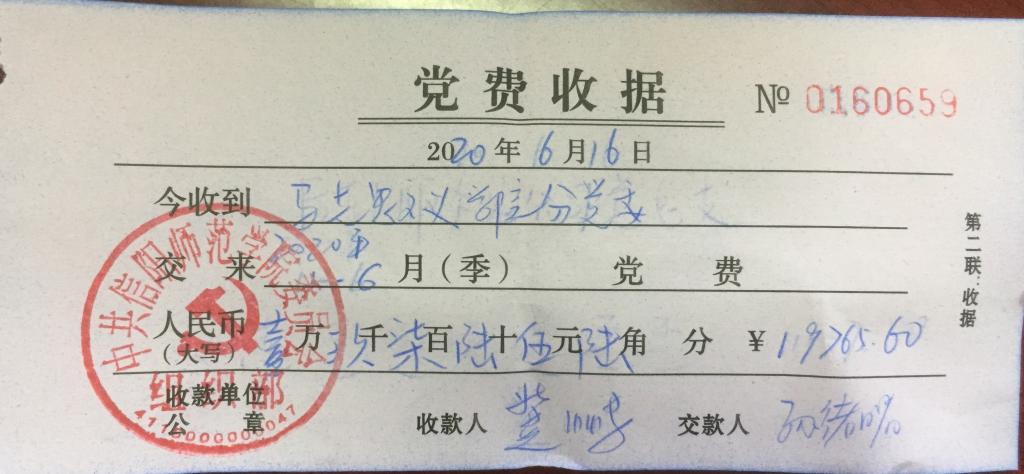 党费收据 № 0160659
2020年6月16日
今收到 马克思主义 分党委
交来 2020年 月(季)党费
人民币(大写) 壹万玖千柒百陆十伍元陆角 分 ¥19765.60
收款单位公章 收款人 楚 交款人 孙绪
第二联:收据
中共信阳师范学院委员会
组织部